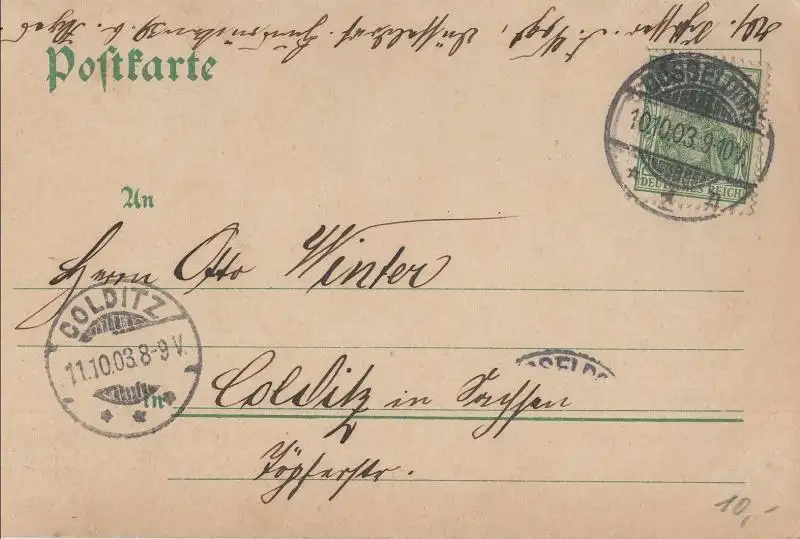 Düsseldorf
Postkarte
DÜSSELDORF
10.10.03.9-10V.
DEUTSCHES REICH
An
Herrn Otto Winter
COLDITZ
11.10.03.8-9V.
in Colditz in Sachsen
Töpferstr.
10,-